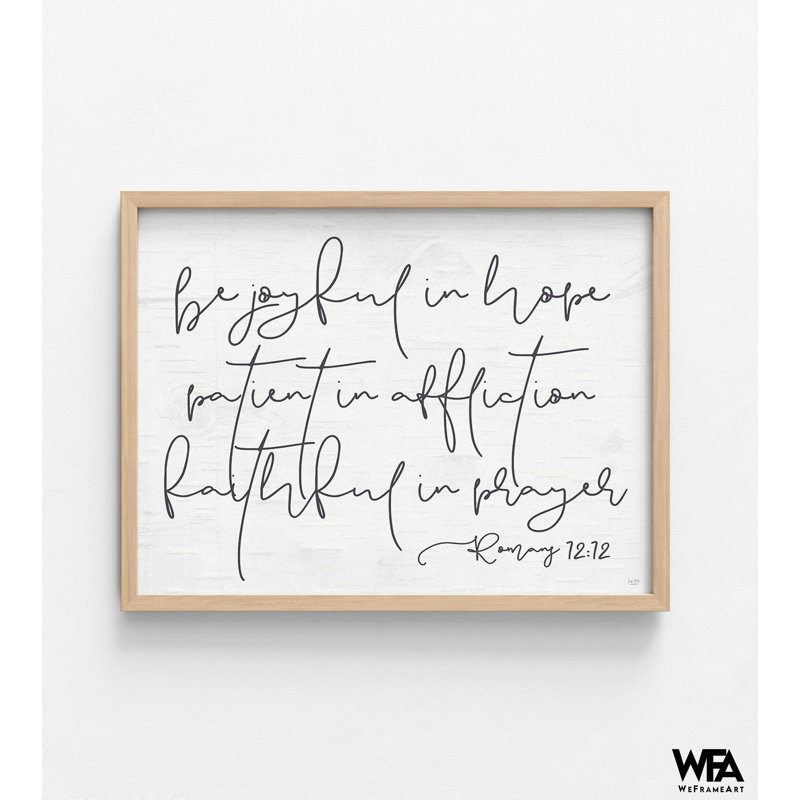 be joyful in hope
patient in affliction
faithful in prayer
Romans 12:12
WFA
WEFRAMEART